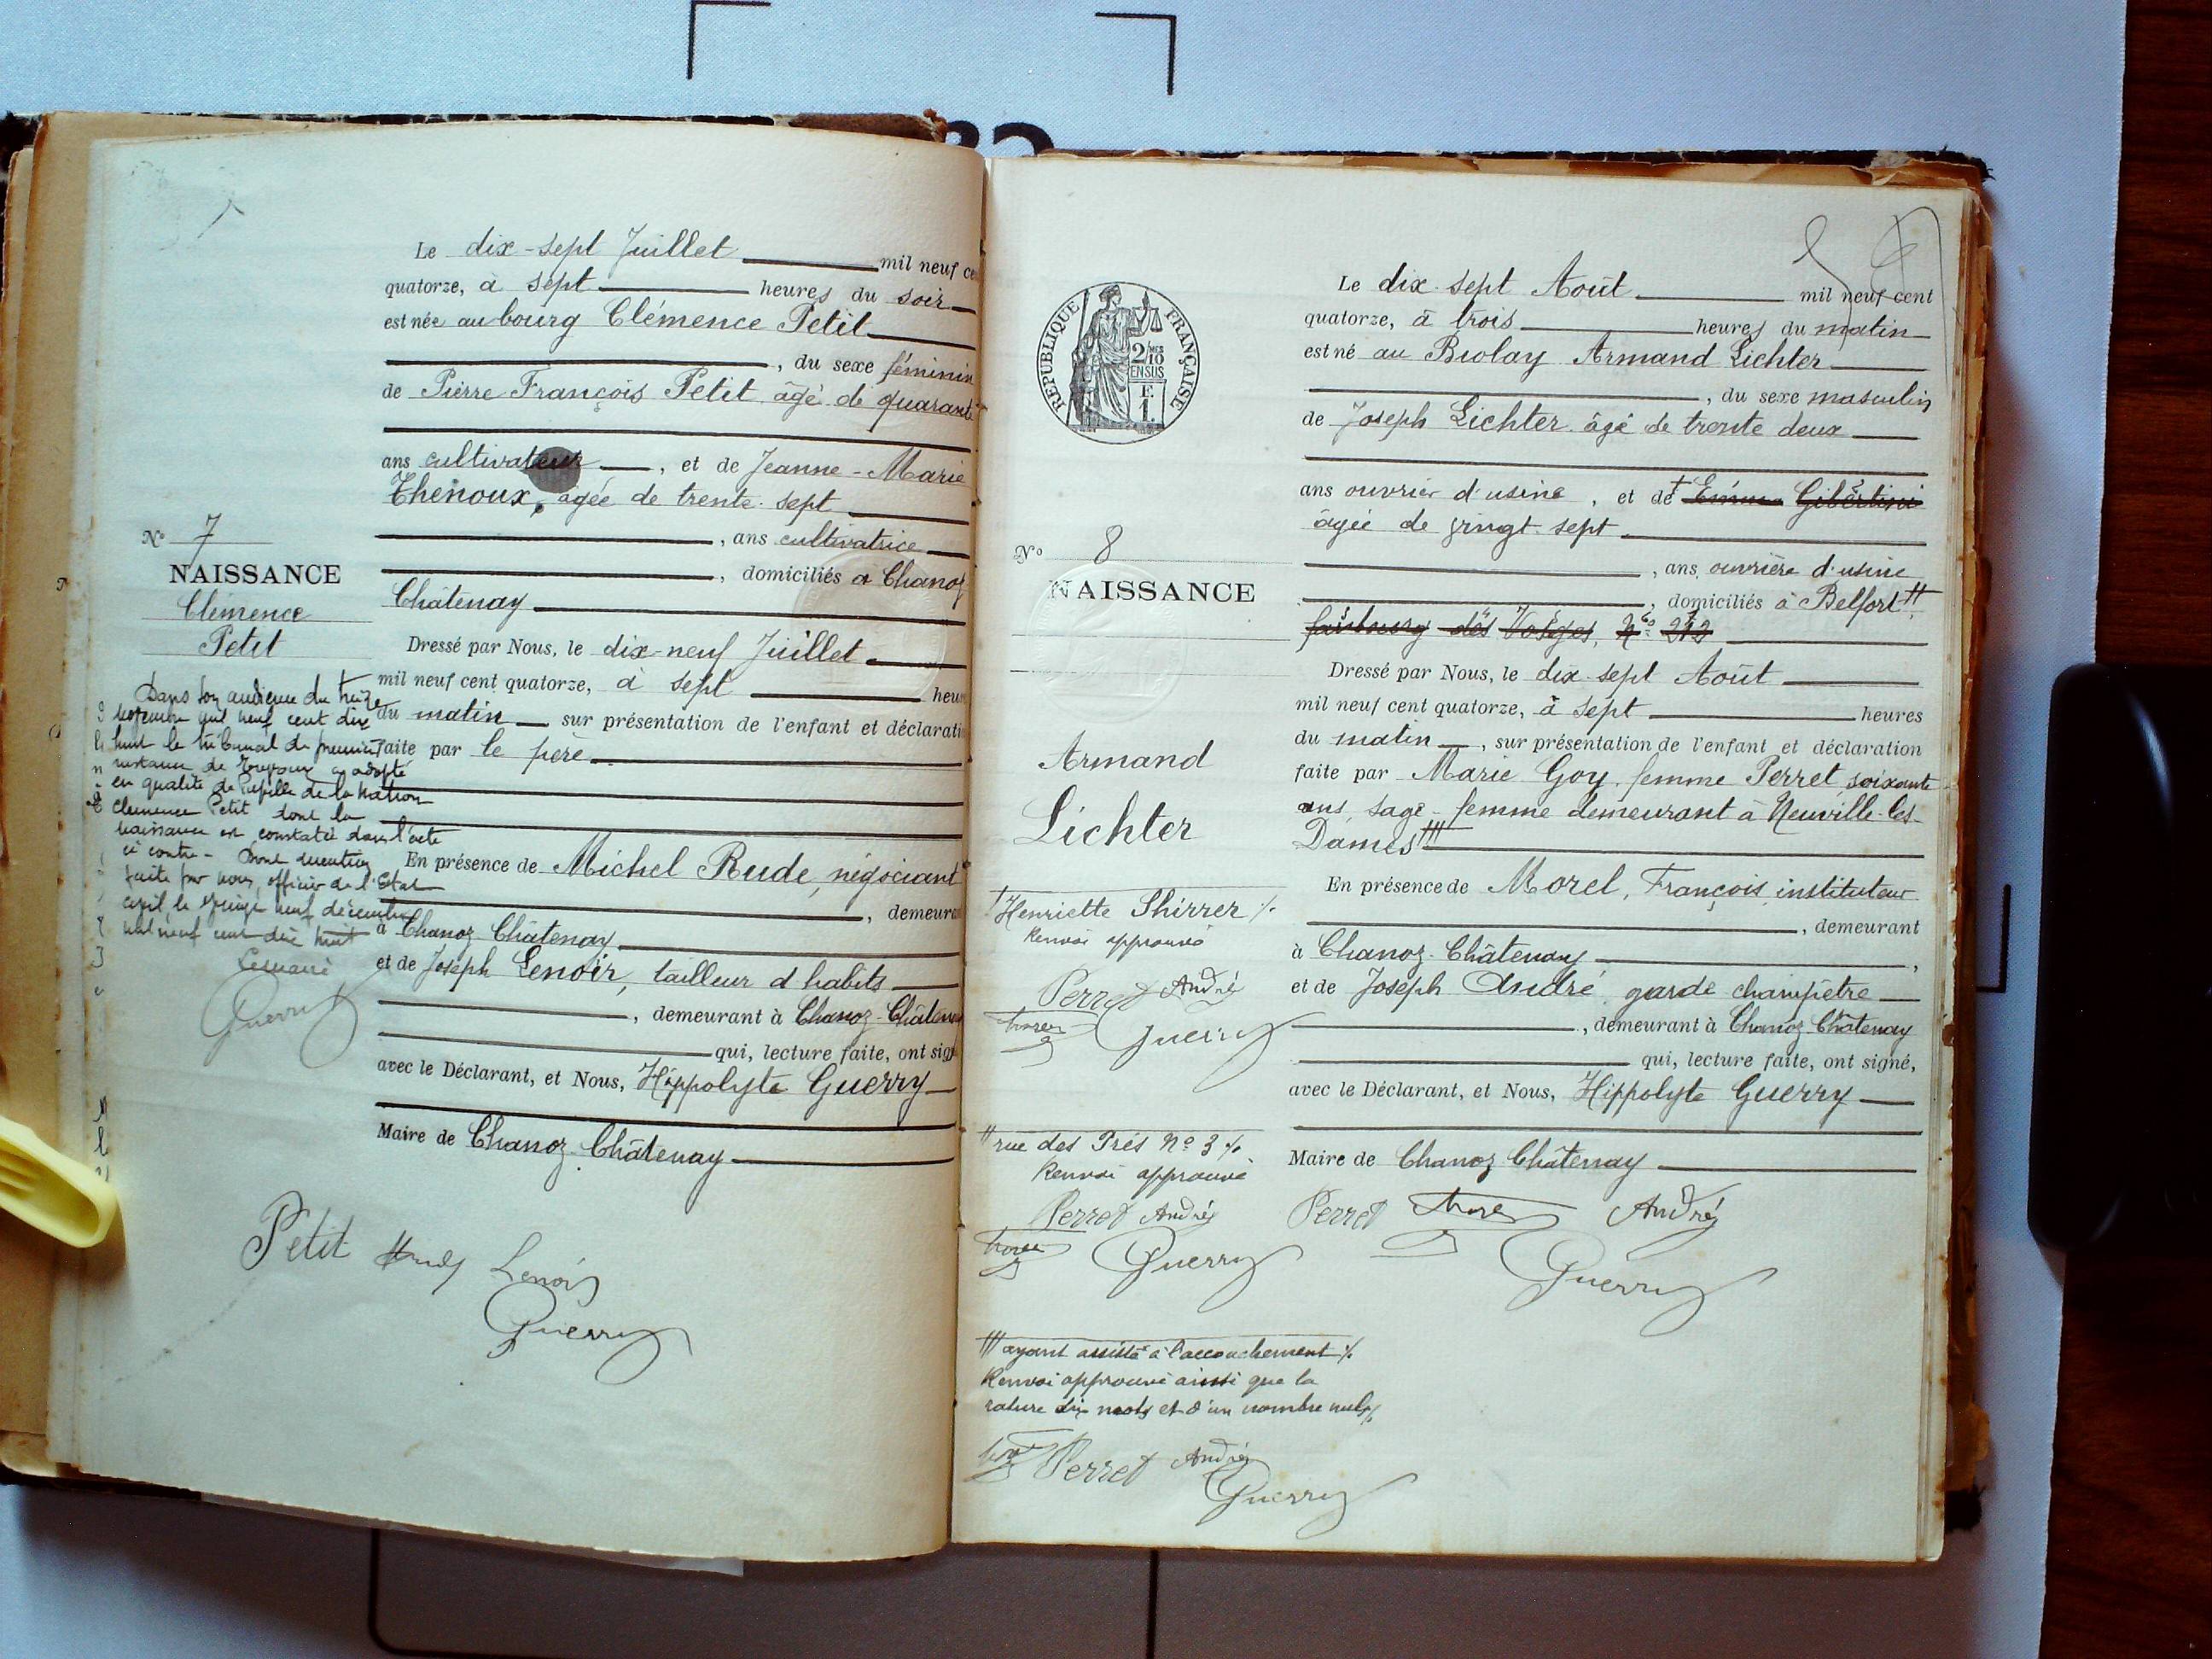 Le dix-sept Juillet mil neuf ce
quatorze, à sept heures du soir
est née au bourg Clémence Petit
, du sexe féminin
de Pierre François Petit âgé de quarante
ans cultivateur, et de Jeanne-Marie
Thenoux, âgée de trente-sept
, ans cultivatrice
, domiciliés à Chanoz
Châtenay
Dressé par Nous, le dix-neuf Juillet
mil neuf cent quatorze, à sept heur
du matin sur présentation de l'enfant et déclarati
faite par le père
En présence de Michel Rude, négociant
, demeura
à Chanoz-Châtenay
et de Joseph Lenoir, tailleur d'habits
, demeurant à Chanoz-Châtenay
qui, lecture faite, ont sign
avec le Déclarant, et Nous, Hippolyte Guerry
Maire de Chanoz-Châtenay
Petit Rude Lenoir
Guerry
N° 7
NAISSANCE
Clémence
Petit
Dans son audience du treize
novembre mil neuf cent dix
huit le tribunal de première
instance de Trévoux a adopté
en qualité de Pupille de la Nation
Clémence Petit dont la
naissance est constatée dans l'acte
ci contre - Dont mention
faite par nous, officier de l'Etat
civil, le vingt neuf décembre
mil neuf cent dix huit
Le maire
Guerry
RÉPUBLIQUE FRANÇAISE
2/10
EN SUS
E.
1.
N° 8
NAISSANCE
Armand
Lichter
† Henriette Shirrer ./.
Renvoi approuvé
Perret André
Morel Guerry
†† rue des Prés N° 3 ./.
Renvoi approuvé
Perret André
Morel Guerry
††† ayant assisté à l'accouchement ./.
Renvoi approuvé ainsi que la
rature dix mots et d'un nombre nuls ./.
Morel Perret André
Guerry
Le dix-sept Août mil neuf cent
quatorze, à trois heures du matin
est né au Biolay Armand Lichter
, du sexe masculin
de Joseph Lichter âgé de trente deux
ans ouvrier d'usine, et de † Emma Gibertini
âgée de vingt-sept
, ans, ouvrière d'usine
, domiciliés à Belfort ††
faubourg des Vosges, N° 212
Dressé par Nous, le dix-sept Août
mil neuf cent quatorze, à sept heures
du matin, sur présentation de l'enfant et déclaration
faite par Marie Goy, femme Perret, soixante
ans, sage-femme demeurant à Neuville-les-
Dames †††
En présence de Morel, François, instituteur
, demeurant
à Chanoz-Châtenay,
et de Joseph André, garde champêtre
, demeurant à Chanoz-Châtenay
qui, lecture faite, ont signé,
avec le Déclarant, et Nous, Hippolyte Guerry
Maire de Chanoz-Châtenay
Perret Morel André
Guerry